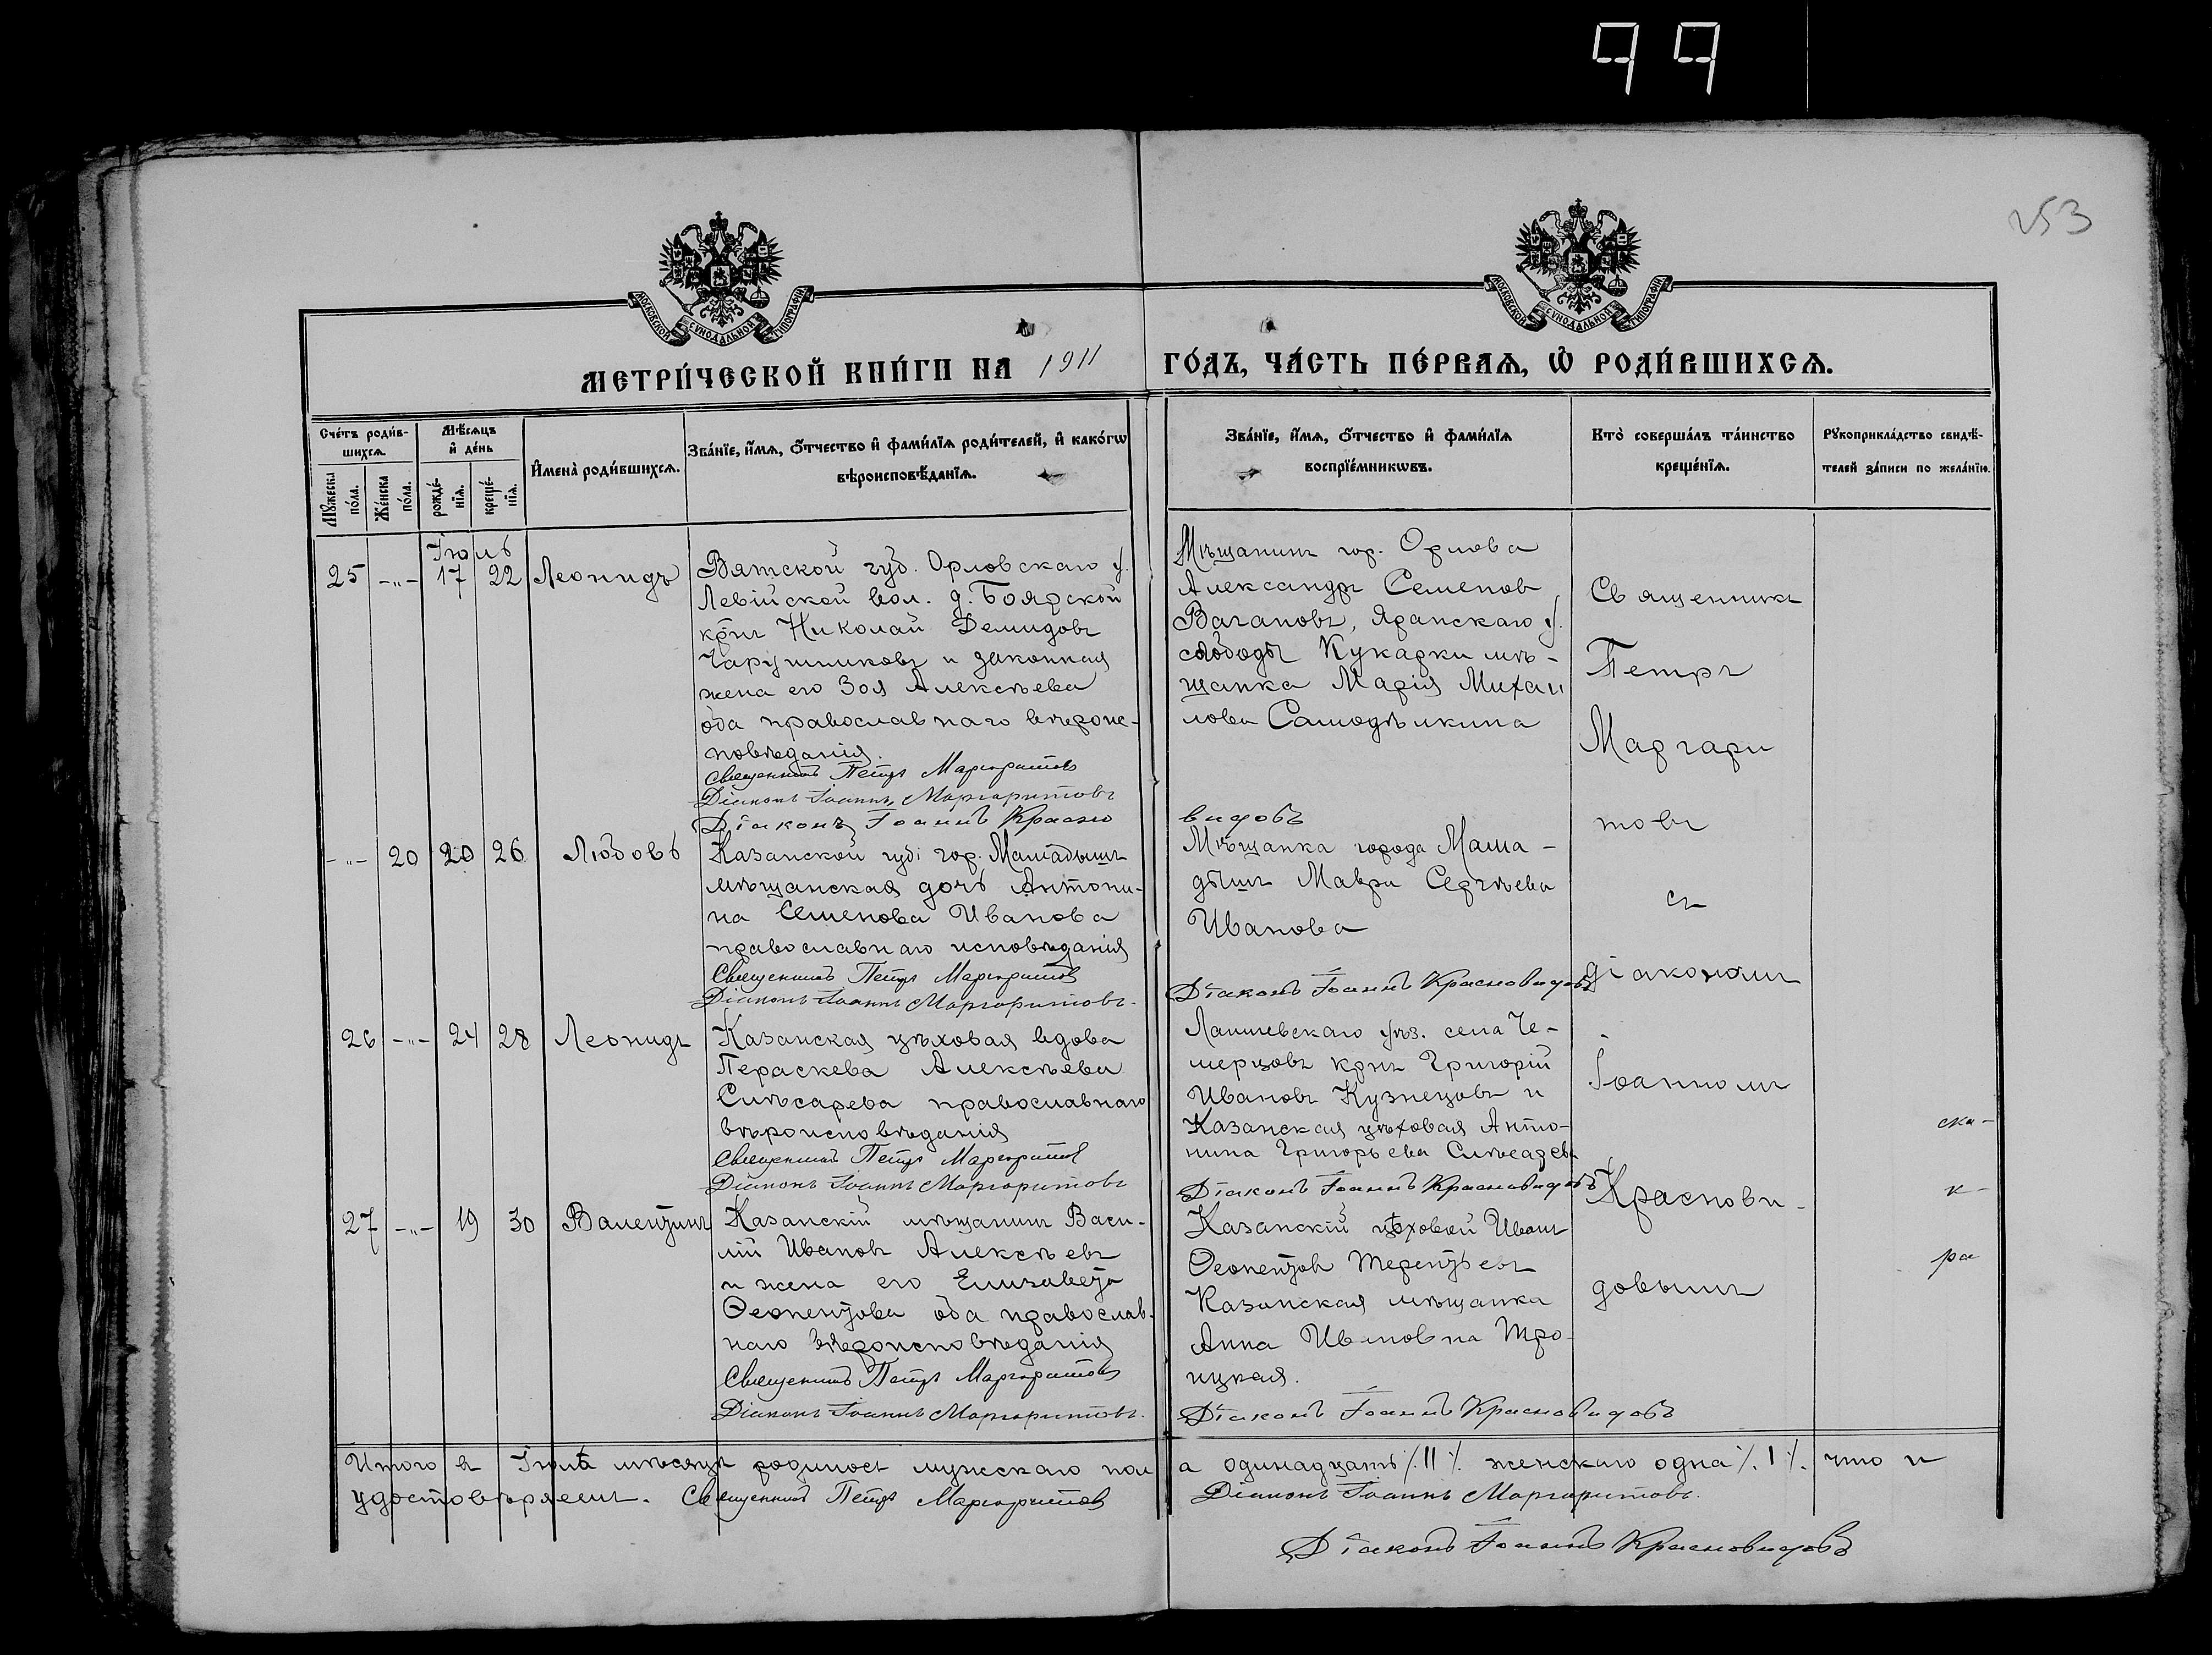 99
253
МОСКОВСКОЙ СУНОДАЛЬНОЙ ТИПОГРАФІИ
МОСКОВСКОЙ СУНОДАЛЬНОЙ ТИПОГРАФІИ
МЕТРИ́ЧЕСКОЙ КНИ́ГИ НА 1911 ГО́ДЪ, ЧА́СТЬ ПЕ́РВАѦ, Ѡ РОДИ́ВШИХСѦ.
Сче́тъ роди́вшихсѧ.
Мꙋ́жеска по́ла.
Же́нска по́ла.
Мѣ́сѧцъ и҆ де́нь
рожде́нїѧ.
креще́нїѧ.
И҆мена̀ роди́вшихсѧ.
Зва́нїе, и҆́мѧ, ѻ҆́тчество и҆ фами́лїѧ роди́телей, и҆ како́гѡ вѣроисповѣ́данїѧ.
Зва́нїе, и҆́мѧ, ѻ҆́тчество и҆ фами́лїѧ воспрїе́мникѡвъ.
Кто̀ соверша́лъ та́инство креще́нїѧ.
Рꙋкоприкла́дство свидѣ́телей за́писи по жела́нїю.
Іюль
25 -"- 17 22 Леонидъ
Вятской губ. Орловскаго у.
Левійской вол. д. Боярской
крнъ Николай Демидовъ
Чарушниковъ и законная
жена его Зоя Алексѣева
оба православнаго вѣроис-
повѣданія.
Священникъ Петръ Маргаритовъ
Діаконъ Іоаннъ Маргаритовъ
Діаконъ Іоаннъ Красно
Мѣщанинъ гор. Орлова
Александръ Семенов
Ваганов, Яранскаго у.
слободы Кукарки мѣ-
щанка Марія Михаи
лова Самодѣлкина
видовъ
-"- 20 20 26 Любовь
Казанской губ. гор. Мамадышъ
мѣщанская дочь Антони-
на Семенова Иванова
православнаго исповѣданія
Священникъ Петръ Маргаритовъ
Діаконъ Іоаннъ Маргаритовъ.
Мѣщанка города Мама-
дышъ Мавра Сергѣева
Иванова
Діаконъ Іоаннъ Красновидовъ
26 -"- 24 28 Леонидъ
Казанская цѣховая вдова
Пераскева Алексѣева
Слѣсарева православнаго
вѣроисповѣданія
Священникъ Петръ Маргаритовъ
Діаконъ Іоаннъ Маргаритовъ
Лаишевскаго уѣз. села Че-
мерцовъ крнъ Григорій
Ивановъ Кузнецовъ и
Казанская цѣховая Анто-
нина Григорьева Слѣсарева
Діаконъ Іоаннъ Красновидовъ
27 -"- 19 30 Валентинъ
Казанскій мѣщанинъ Васи-
лій Ивановъ Алексѣевъ
и жена его Елизавета
Ѳеопентова оба православ-
наго вѣроисповѣданія
Священникъ Петръ Маргаритовъ
Діаконъ Іоаннъ Маргаритовъ.
Казанскій цѣховой Иванъ
Ѳеопентов Терентьевъ
Казанская мѣщанка
Анна Ивановна Тро-
ицкая.
Діаконъ Іоаннъ Красновидовъ
Священникъ
Петръ
Маргари
товъ
съ
діакономъ
Іоанномъ
Краснови-
довымъ
ска-
к-
ра
Итого въ Іюлѣ мѣсяцѣ родилось мужскаго пола одинадцать ./.11./. женскаго одна ./.1./. что и
удостовѣряемъ. Священникъ Петръ Маргаритовъ Діаконъ Іоаннъ Маргаритовъ.
Діаконъ Іоаннъ Красновидовъ